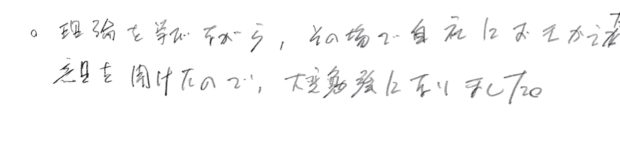 。理論を学びながら、その場で自社におきかえ
意見を聞けたので、大変勉強になりました。